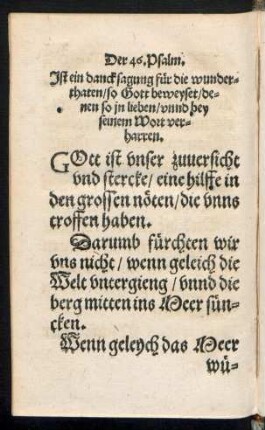 Der 46. Psalm.
Ist ein dancksagung für die wunder-
thaten/so Gott beweyset/de-
nen so jn lieben/vnnd bey
seinem Wort ver-
harren.
GOtt ist vnser zuuersicht
vnd stercke/ eine hilffe in
den grossen nöten/die vnns
troffen haben.
Darumb fürchten wir
vns nicht/ wenn geleich die
Welt vntergieng/ vnnd die
berg mitten ins Meer sün-
cken.
Wenn geleych das Meer
wü-